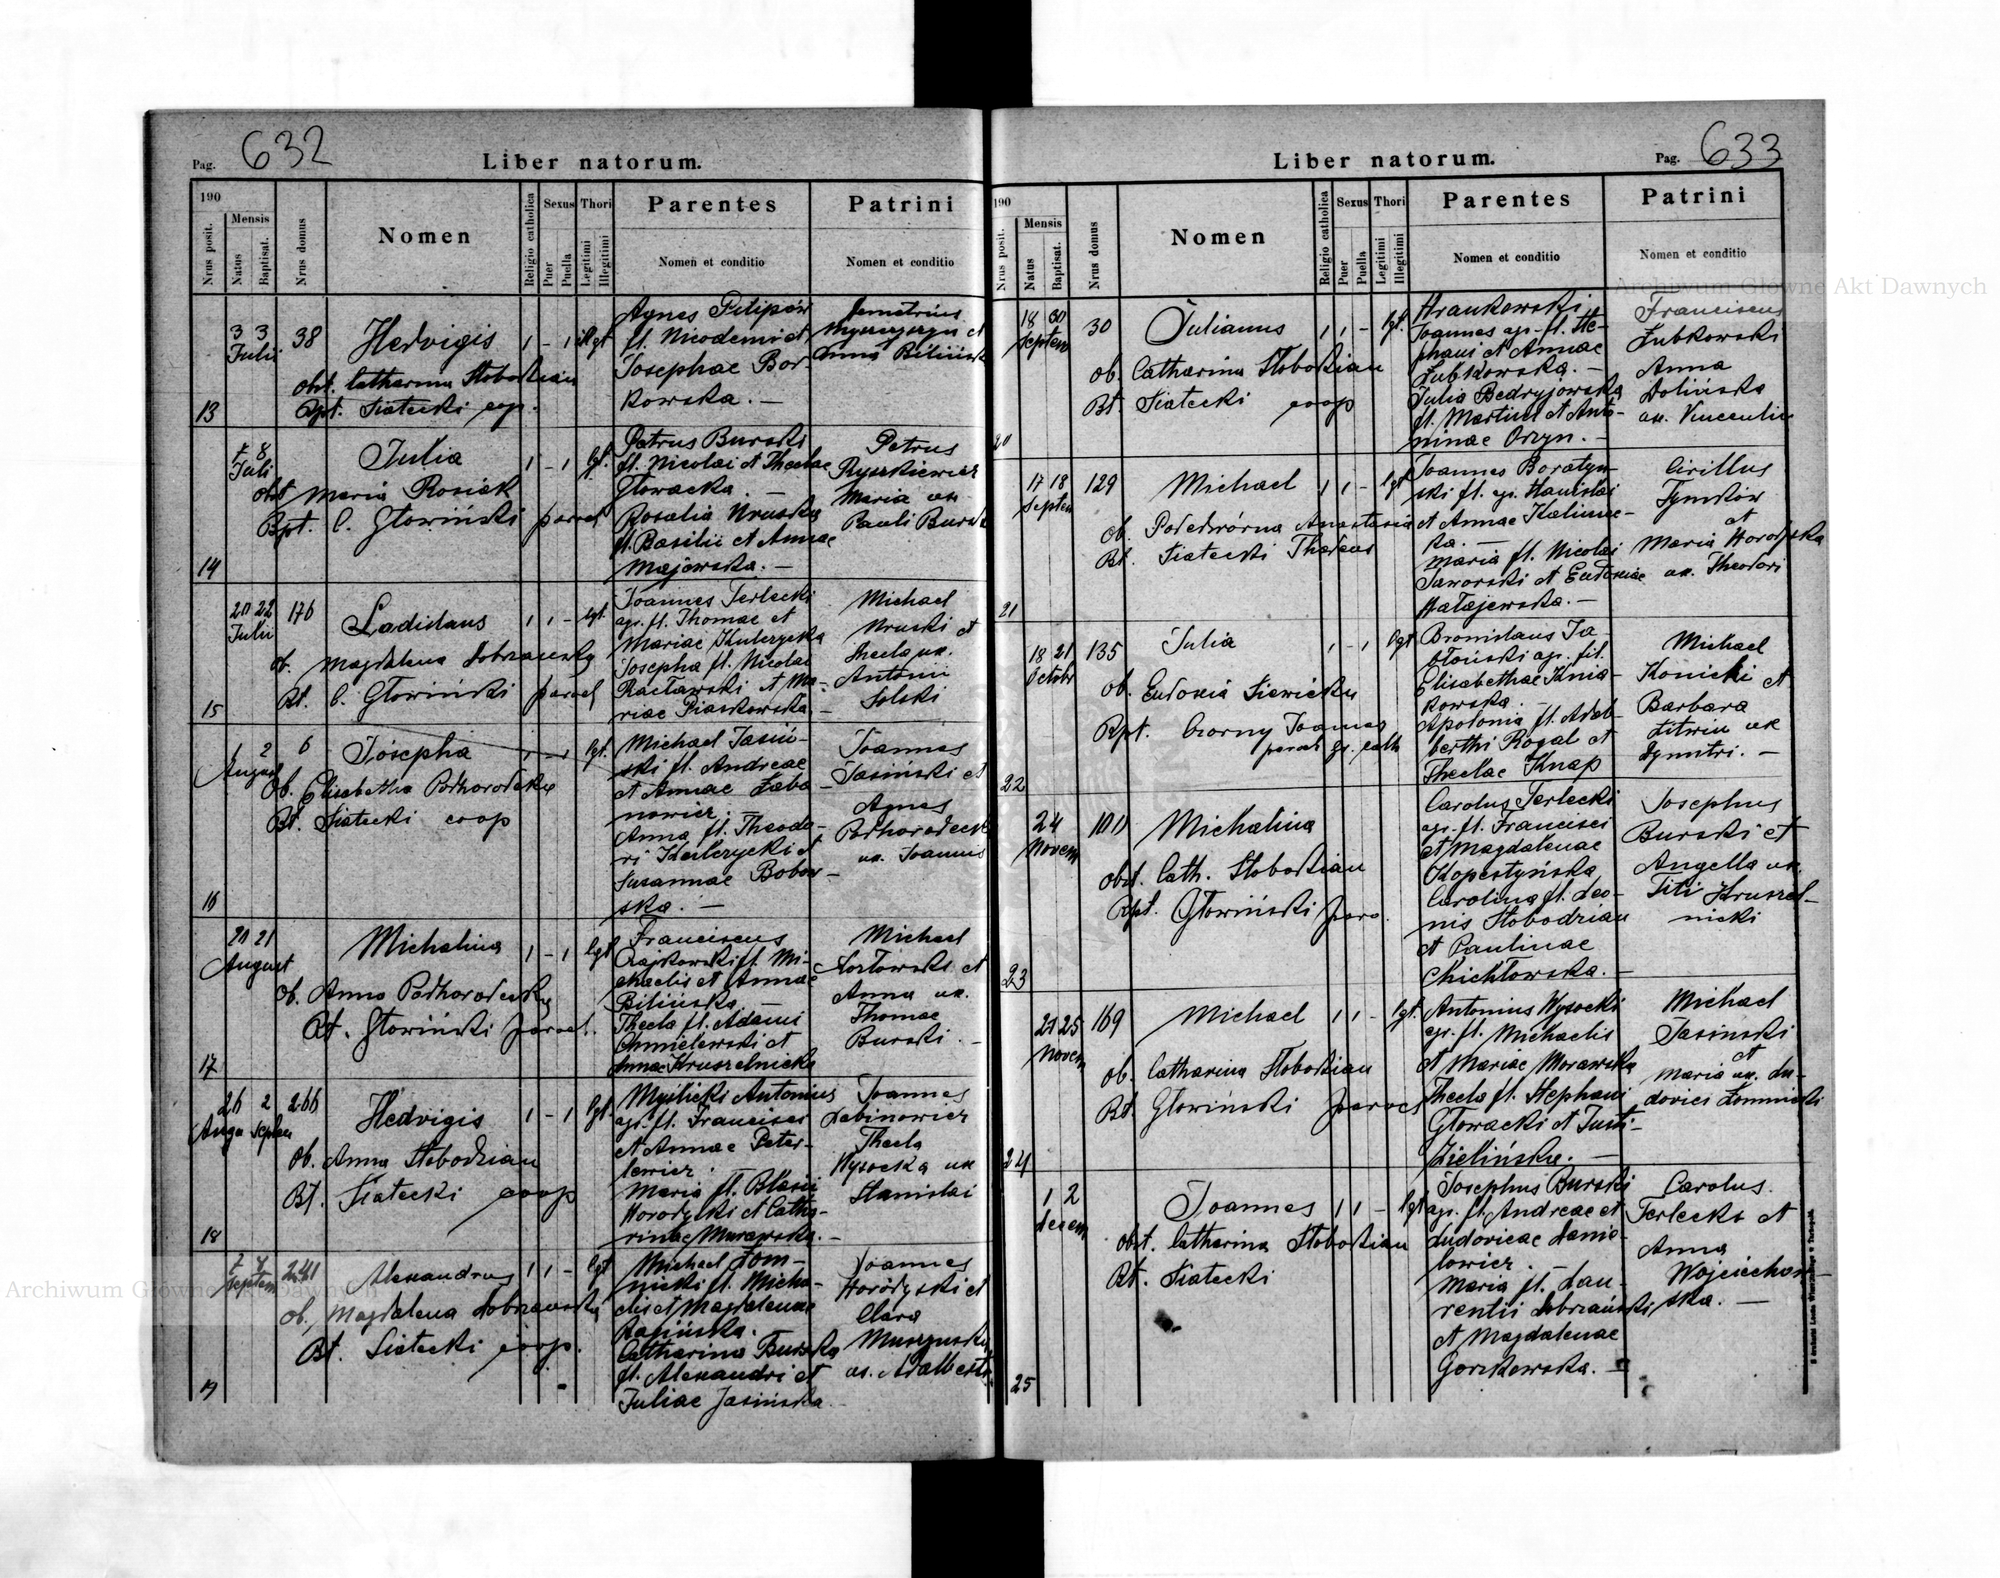 Pag. 632
Liber natorum.
190
Nrus posit.
Mensis
Natus
Baptisat.
Nrus domus
Nomen
Religio catholica
Sexus
Puer
Puella
Thori
Legitimi
Illegitimi
Parentes
Nomen et conditio
Patrini
Nomen et conditio
13
3 3
Julii
38
Hedvigis
1 - 1
obst. Catharina Slobodzian
Bpt. Siatecki coop.
Agnes Filipów
fl. Nicodemi et
Josephae Bor-
kowska. -
Demetrius
et
Anna Bilińska
14
7 8
Juli
Julia
1 - 1 lgt.
obst Maria Rosiak
Bpt. C. Głowiński paroch
Petrus Burski
fl. Nicolai et Theclae
Głowacka. -
Rosalia Uruska
fl. Basilii et Annae
Majewska. -
Petrus
Ryszkiewicz
Maria ux.
Pauli Burski
15
20 22
Julii
176
Ladislaus
1 1 - lgt.
ob. Magdalena Dobrzańska
Bt. C. Głowiński paroch
Joannes Terlecki
agr. fl. Thomae et
Mariae Kulczycka
Josepha fl. Nicolai
Racławski et Ma-
riae Piaskowska. -
Michael
Uruski et
Thecla ux.
Antonii
Solski
16
2
August
6
Josepha
- 1 lgt.
Ob. Elisabetha Podhorodecka
Bt. Siatecki coop
Michael Jasiń-
ski fl. Andreae
et Annae Łaba-
nowicz.
Anna fl. Theodo-
ri Kulczycki et
Susannae Bobow-
ska. -
Joannes
Jasiński et
Agnes
Podhorodecka
ux. Joannis
17
20 21
August
Michalina
1 - 1 lgt
ob. Anna Podhorodecka
Bt. Głowiński paroch.
Franciscus
Czajkowski fl. Mi-
chaelis et Annae
Bilińska. -
Thecla fl. Adami
Chmielewski et
Annae Kruszelnicka
Michael
et
Anna ux.
Thomae
Burski. -
18
26 2
Augu Septem
266
Hedvigis
1 - 1 lgt
ob. Anna Slobodzian
Bt. Siatecki coop
Antonius
agr. fl. Francisci
et Annae Peter-
lewicz.
Maria fl. Blasii
Horodyski et Catha-
rinae Murawska. -
Joannes
Labinowicz
Thecla
Wysocka ux
Stanislai
19
7
Septem
241
Alexandrus
1 1 - lgt
ob. Magdalena Dobrzańska
Bt. Siatecki coop.
Michael Łom-
nicki fl. Micha-
elis et Magdalenae
Catharina Burska
fl. Alexandri et
Juliae Jasińska.
Joannes
Horodyski et
Clara
ux. Adalberti
Liber natorum.
Pag. 633
190
Nrus posit.
Mensis
Natus
Baptisat.
Nrus domus
Nomen
Religio catholica
Sexus
Puer
Puella
Thori
Legitimi
Illegitimi
Parentes
Nomen et conditio
Patrini
Nomen et conditio
20
18 30
Septem
30
Julianus
1 1 - lgt.
ob. Catharina Slobodzian
Bt. Siatecki coop
Hrankowski
Joannes agr. fl. Ste-
phani et Annae
Łubkowska. -
Julia Bedryjowska
fl. Martini et Anto-
ninae Orzyn. -
Franciscus
Łubkowski
Anna
Dolińska
ux. Vincentii
21
17 18
Septem
129
Michael
1 1 - lgt
ob. Podedwórna Anastasia
Bt. Siatecki Thadeus
Joannes Boratyn-
ski fl. agr. Stanislai
et Annae Kalinow-
ka. -
Maria fl. Nicolai
Jaworski et Eudoxiae
Hałajewska. -
Cirillus
Tymków
et
Maria Horodyska
ux. Theodori
22
18 21
Octobr
135
Julia
1 - 1 lgt
ob. Eudoxia Siewicka
Bpt. Czorny Joannes
paroch gr. cath
Bronislaus Ja-
błoński agr. fil.
Elisabethae Knia-
kowska. -
Apolonia fl. Adal-
berthi Rogal et
Theclae Knap
Michael
Konicki et
Barbara
Litwin ux
Dymitri. -
23
24
Novem
100
Michalina
obst. Cath. Slobodzian
Bpt. Głowiński paro.
Carolus Terlecki
agr. fl. Francisci
et Magdalenae
Kopestyńska
Carolina fl. Leo-
nis Slobodzian
et Paulinae
Michłowska. -
Josephus
Burski et
Angella ux.
Titi Kruszel-
nicki
24
21 25
Novem
169
Michael
1 1 - lgt.
ob. Catharina Slobodzian
Bt Głowiński paroch
Antonius Wysocki
agr. fl. Michaelis
et Mariae Morawska
Thecla fl. Stephani
Głowacki et Justi-
Zielińska. -
Michael
Jasinski
et
Maria ux. Lu-
dovici Łomnicki
25
1 2
Decem
Joannes
1 1 - lgt
obst. Catharina Slobodzian
Bt. Siatecki
Josephus Burski
agr. fl. Andreae et
Ludovicae Danie-
lowicz. -
Maria fl. Lau-
rentii Dobrzański
et Magdalenae
Gorzkowska. -
Carolus
Terlecki et
Anna
Wojciechow-
ska. -
Archiwum Główne Akt Dawnych
Archiwum Główne Akt Dawnych